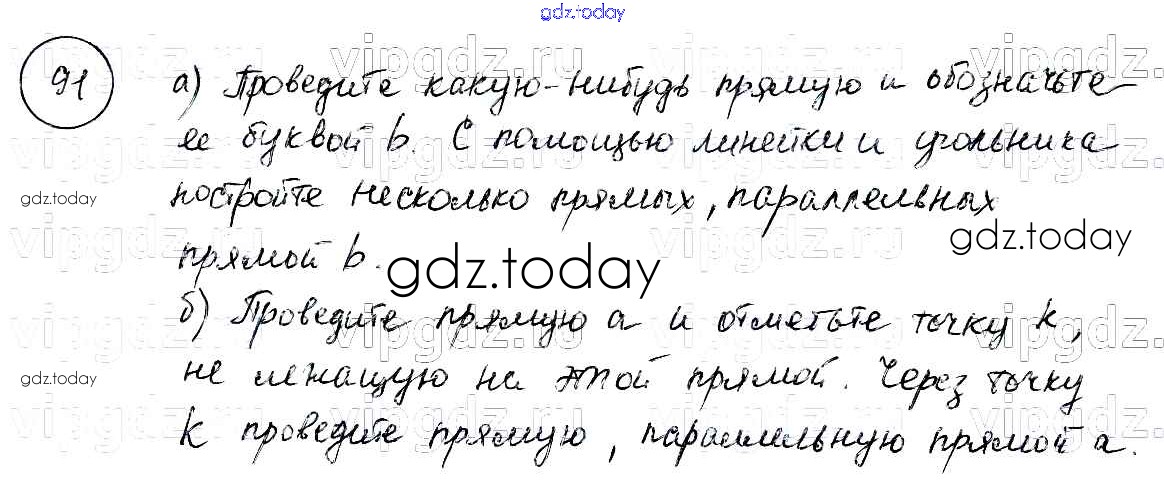 gdz.today
91
а) Проведите какую-нибудь прямую и обозначьте
ее буквой b. С помощью линейки и угольника
gdz.today
постройте несколько прямых, параллельных
gdz.today
прямой b.
gdz.today
б) Проведите прямую a и отметьте точку k,
gdz.today
не лежащую на этой прямой. Через точку
k проведите прямую, параллельную прямой a.
vipgdz.ru vipgdz.ru vipgdz.ru vipgdz.ru